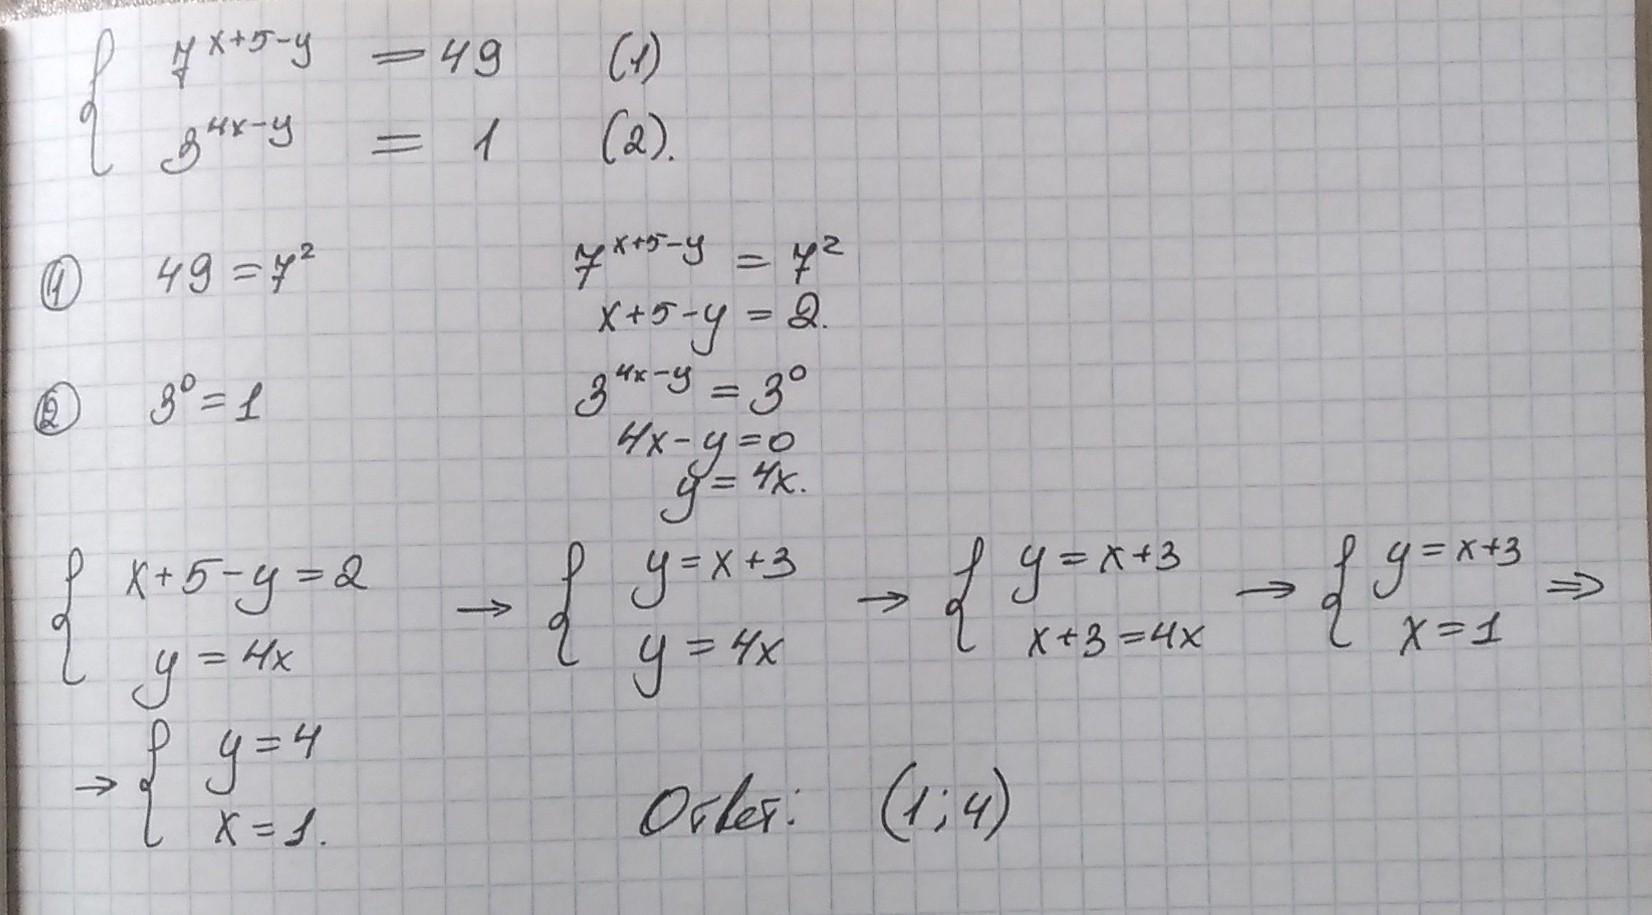 { 7^(x+5-y) = 49 (1)
3^(4x-y) = 1 (2).
① 49 = 7² 7^(x+5-y) = 7²
x+5-y = 2.
② 3⁰ = 1 3^(4x-y) = 3⁰
4x-y=0
y = 4x.
{ x+5-y=2 → { y=x+3 → { y=x+3 → { y=x+3 ⇒
y = 4x y = 4x x+3=4x x=1
→ { y=4
x=1.
Ответ: (1;4)